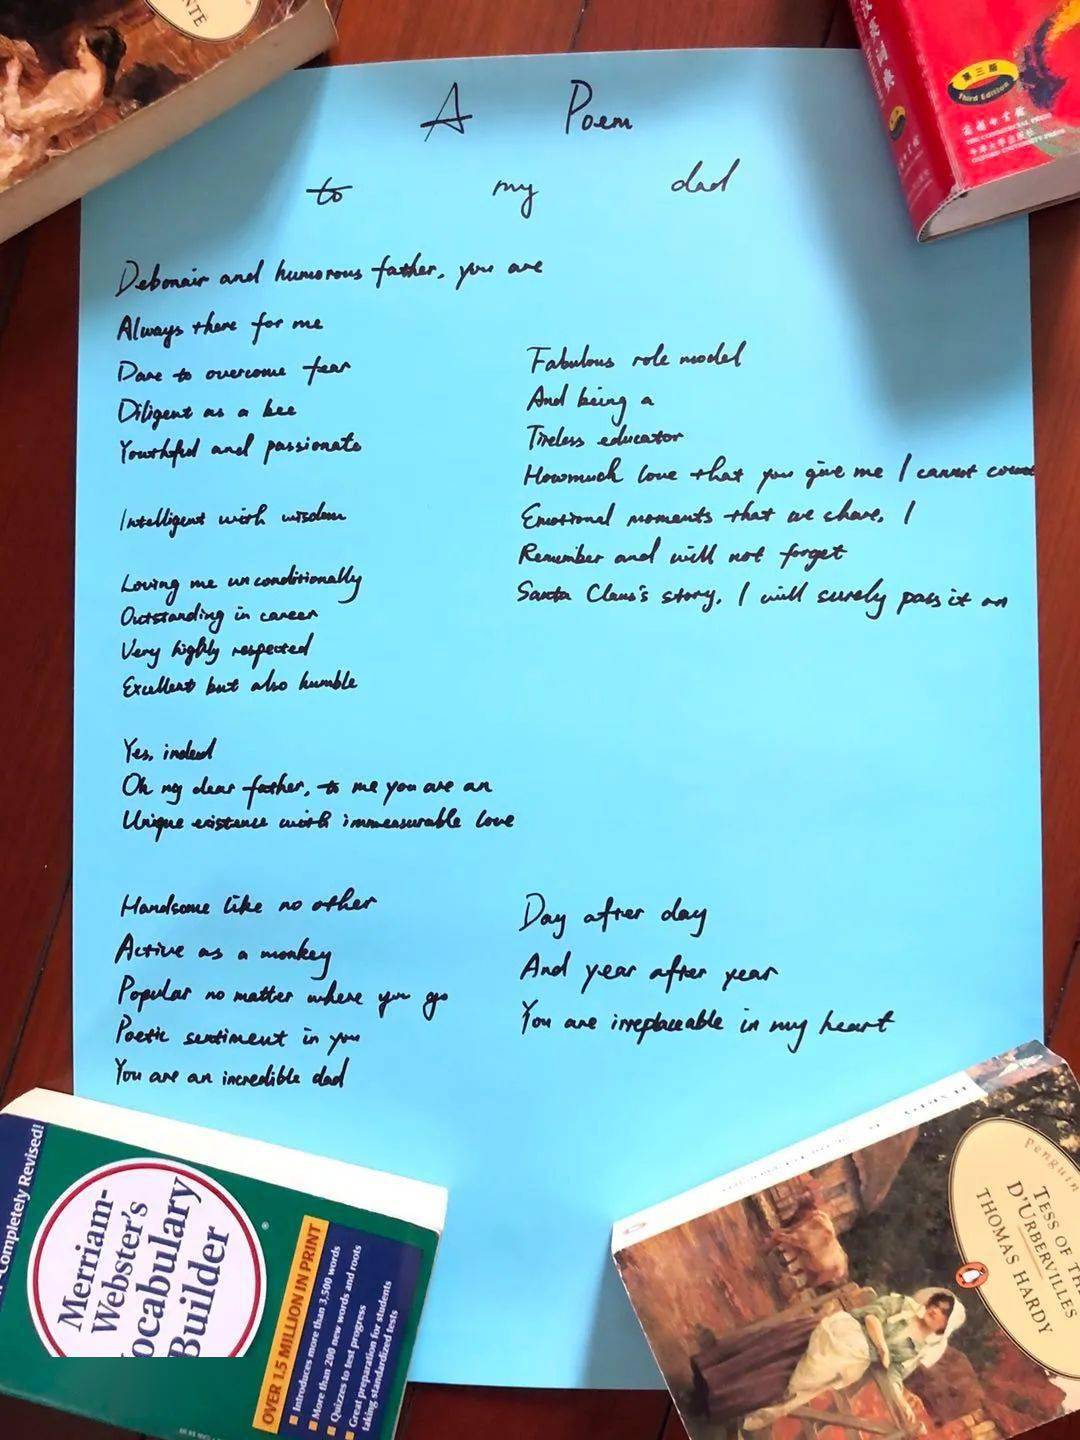 NTE
第三版
Third Edition
商务印书馆
THE COMMERCIAL PRESS
牛津大学出版社
OXFORD UNIVERSITY PRESS
A Poem
to my dad
Debonair and humorous father, you are
Always there for me
Dare to overcome fear
Diligent as a bee
Youthful and passionate
Intelligent with wisdom
Loving me unconditionally
Outstanding in career
Very highly respected
Excellent but also humble
Yes, indeed
Oh my dear father, to me you are an
Unique existence with immeasurable love
Fabulous role model
And being a
Tireless educator
Howmuch love that you give me I cannot count
Emotional moments that we share, I
Remember and will not forget
Santa Claus's story, I will surely pass it on
Handsome like no other
Active as a monkey
Popular no matter where you go
Poetic sentiment in you
You are an incredible dad
Day after day
And year after year
You are irreplaceable in my heart
Completely Revised!
Merriam-
Webster's
ocabulary
Builder
OVER 1.5 MILLION IN PRINT
Introduces more than 3,500 words
More than 200 new words and roots
Quizzes to test progress
Great preparation for students
taking standardized tests
Penguin
TESS OF TH
D'URBERVILLES
THOMAS HARDY